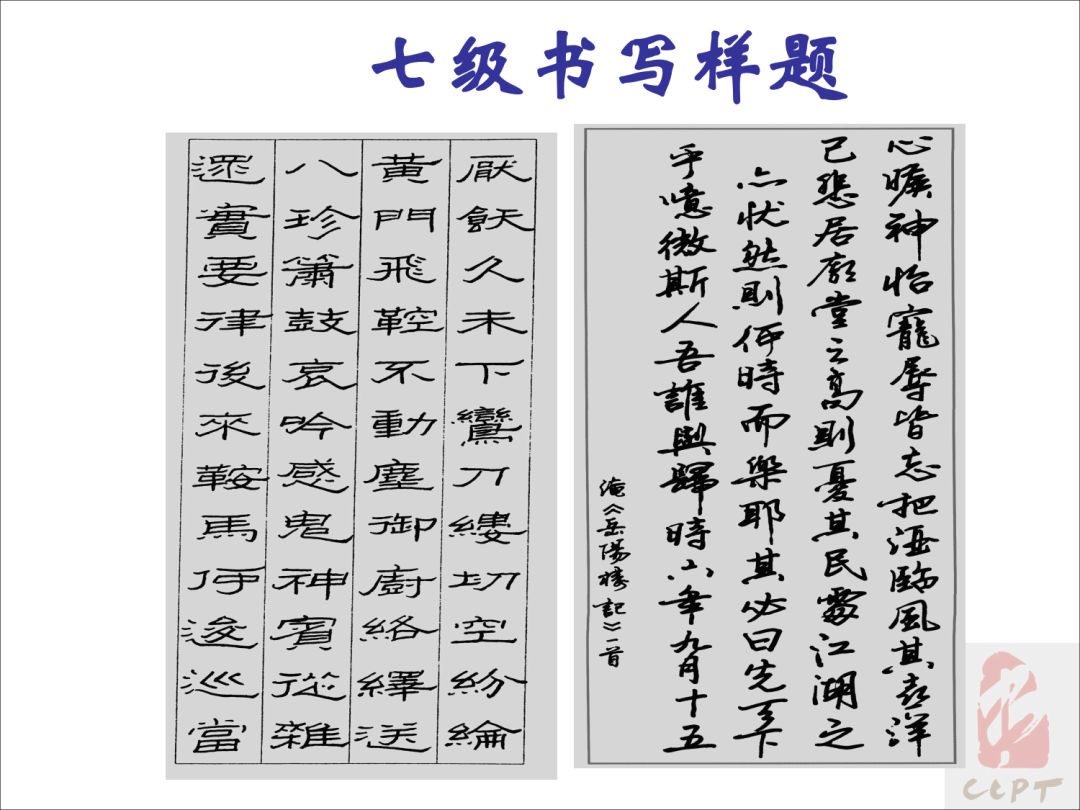 七级书写样题
厭飫久未下鸞刀縷切空紛綸
黃門飛鞚不動塵御廚絡繹送
八珍簫鼓哀吟感鬼神賓從雜
遝實要律後來鞍馬何逡巡當
心曠神怡寵辱皆忘把酒臨風其喜洋
己悲居廟堂之高則憂其民處江湖之
亦状然則何時而樂耶其必曰先天下
乎噫微斯人吾誰與歸時六年九月十五
《岳陽樓記》一首
CCPT